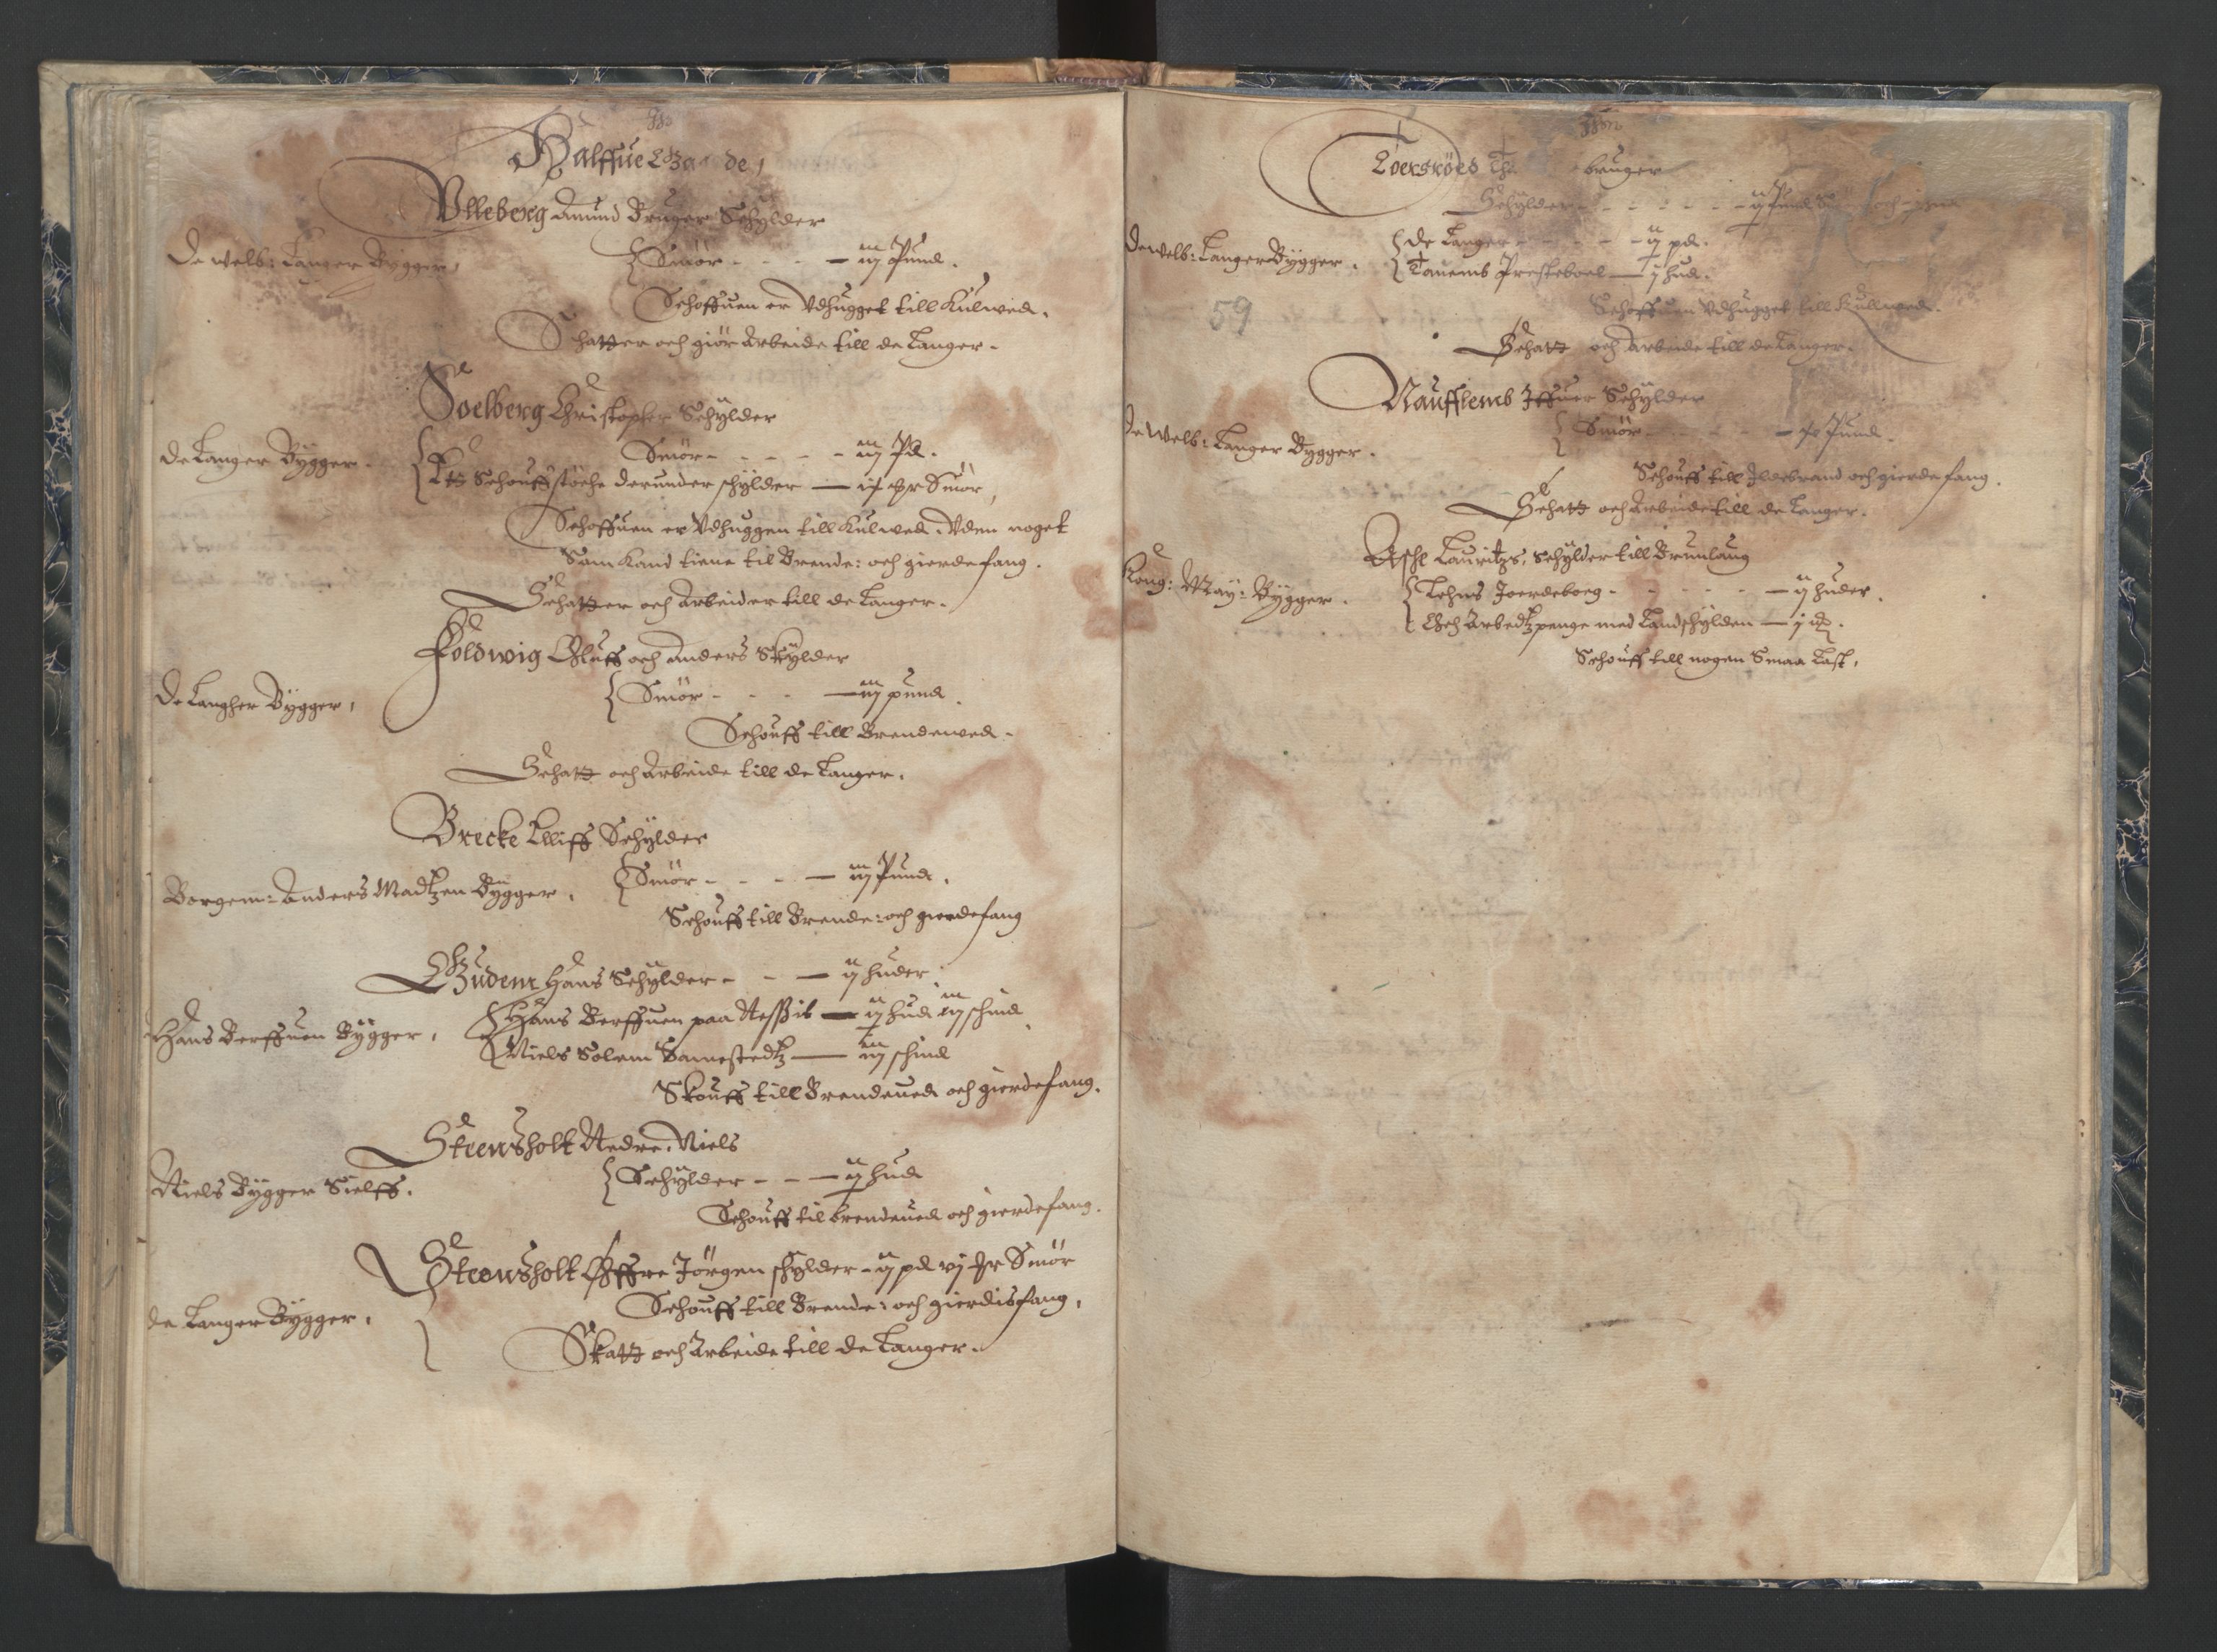 Halffue
Ulleberg Amund Bruger Schylder
De welb: Langer Bygger,
Smör - - - — iij Pund.
Schoffuen er Vdhugget till Kulwed.
Schatter och giör Arbeide till de Langer.
Soelberg Christopher Schylder
De Langer Bygger.
Smör - - - - iij Pd.
Schouffstöche derunder schylder — Smör,
Schoffuen er Vdhuggen till Kulwed. Vden noget
Som Kand tiene til Brende: och gierdefang.
Schatter och Arbeider till de Langer.
Foldwig Oluff och Anders Skylder
De Langher Bygger,
Smör - - - — iij pund.
Schouff till Brendeved.
Schatt och Arbeide till de Langer.
Brecke Elliff Schylder
Borgem: Anders Madtzen Bygger.
Smör - - - — iij Pund.
Schouff till Brende: och gierdefang
Gudem Hans Schylder - - — ij huder
Hans Berffuen Bygger,
Hans Berffuen paa — ij hud iij schind
Niels Solem Samestedtz — iij schind
Skouff till Brendeued och gierdefang.
Steensholt Nedre. Niels
Niels Bygger Sielff.
Schylder - - — ij hud
Schouff til brendeued och gierdefang.
Steensholt Öffre Jörgen schylder - ij pd vj Smör
de Langer Bygger,
Schouff till Brende: och gierdisfang,
Skatt och Arbeide till de Langer.
bruger
Schylder - - - - - - Pund
De welb: Langer Bygger.
De Langer - - - - ij pd.
Tanems Presteboel — j hud.
59
Schoffuen Vdhugget till Kullwed.
Schatt och Arbeide till de Langer.
Naufflemb Iffuer Schylder
De Welb: Langer Bygger.
Smör - - - - - Pund.
Schouff till Ildebrand och gierdefang.
Schatt och Arbeide till de Langer.
Aschl Lauritzs, Schylder till Brunlaug
Kong: May: Bygger.
Lehns Joerdeboeg - - - - - — ij huder.
Och Arbedtzpenge med Landschylden —
Schouff till nogen Smaa Last,